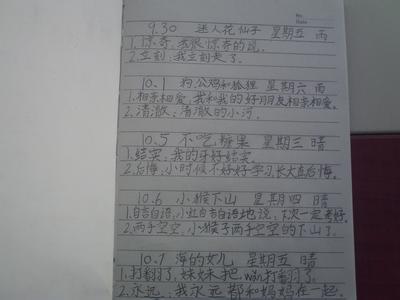 No.
Date
9.30 迷人花仙子 星期五 雨
1.惊奇:我很惊奇的说。
2.立刻:我立刻走了。
10.1 狗、公鸡和狐狸 星期六 雨
1.相亲相爱:我和我的好朋友相亲相爱。
2.清澈:清澈的小河。
10.5 不吃糖果 星期三 晴
1.结实:我的牙好结实。
2.后悔:小时候不好好学习,长大直后悔。
10.6 小猴下山 星期四 晴
1.自言自语:小红自言自语地说:下次一定考好。
2.两手空空:小猴子两手空空的下山了。
10.7 海的女儿 星期五 晴
1.打翻了:妹妹把wǎn打翻了。
2.永远:我永远都和妈妈在一起。